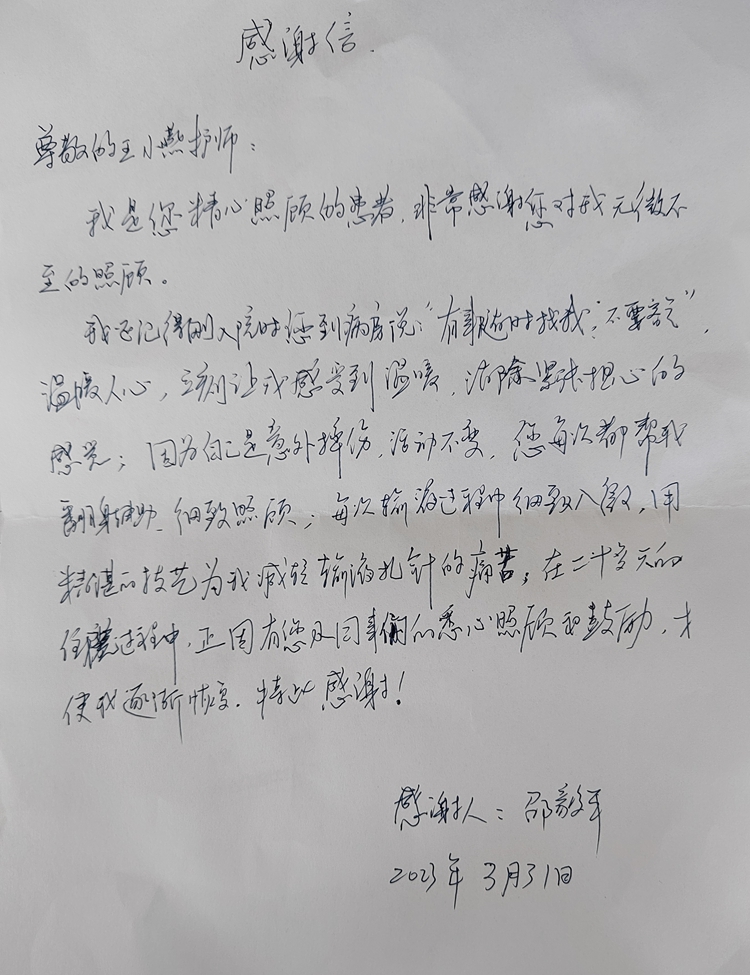 感谢信.
尊敬的王小燕护师：
我是您精心照顾的患者，非常感谢您对我无微不
至的照顾。
我还记得刚入院时您到病房说：“有事随时找我，不要客气”，
温暖人心，立刻让我感受到温暖，消除紧张担心的
感觉；因为自己是意外摔伤，活动不变，您每次都帮我
翻身辅助、细致照顾；每次输液过程中细致入微，用
精湛的技艺为我减轻输液扎针的痛苦；在二十多天的
住院过程中，正因有您及同事们的悉心照顾和鼓励，才
使我逐渐恢复．特此感谢！
感谢人：邵毅军
2023年3月31日